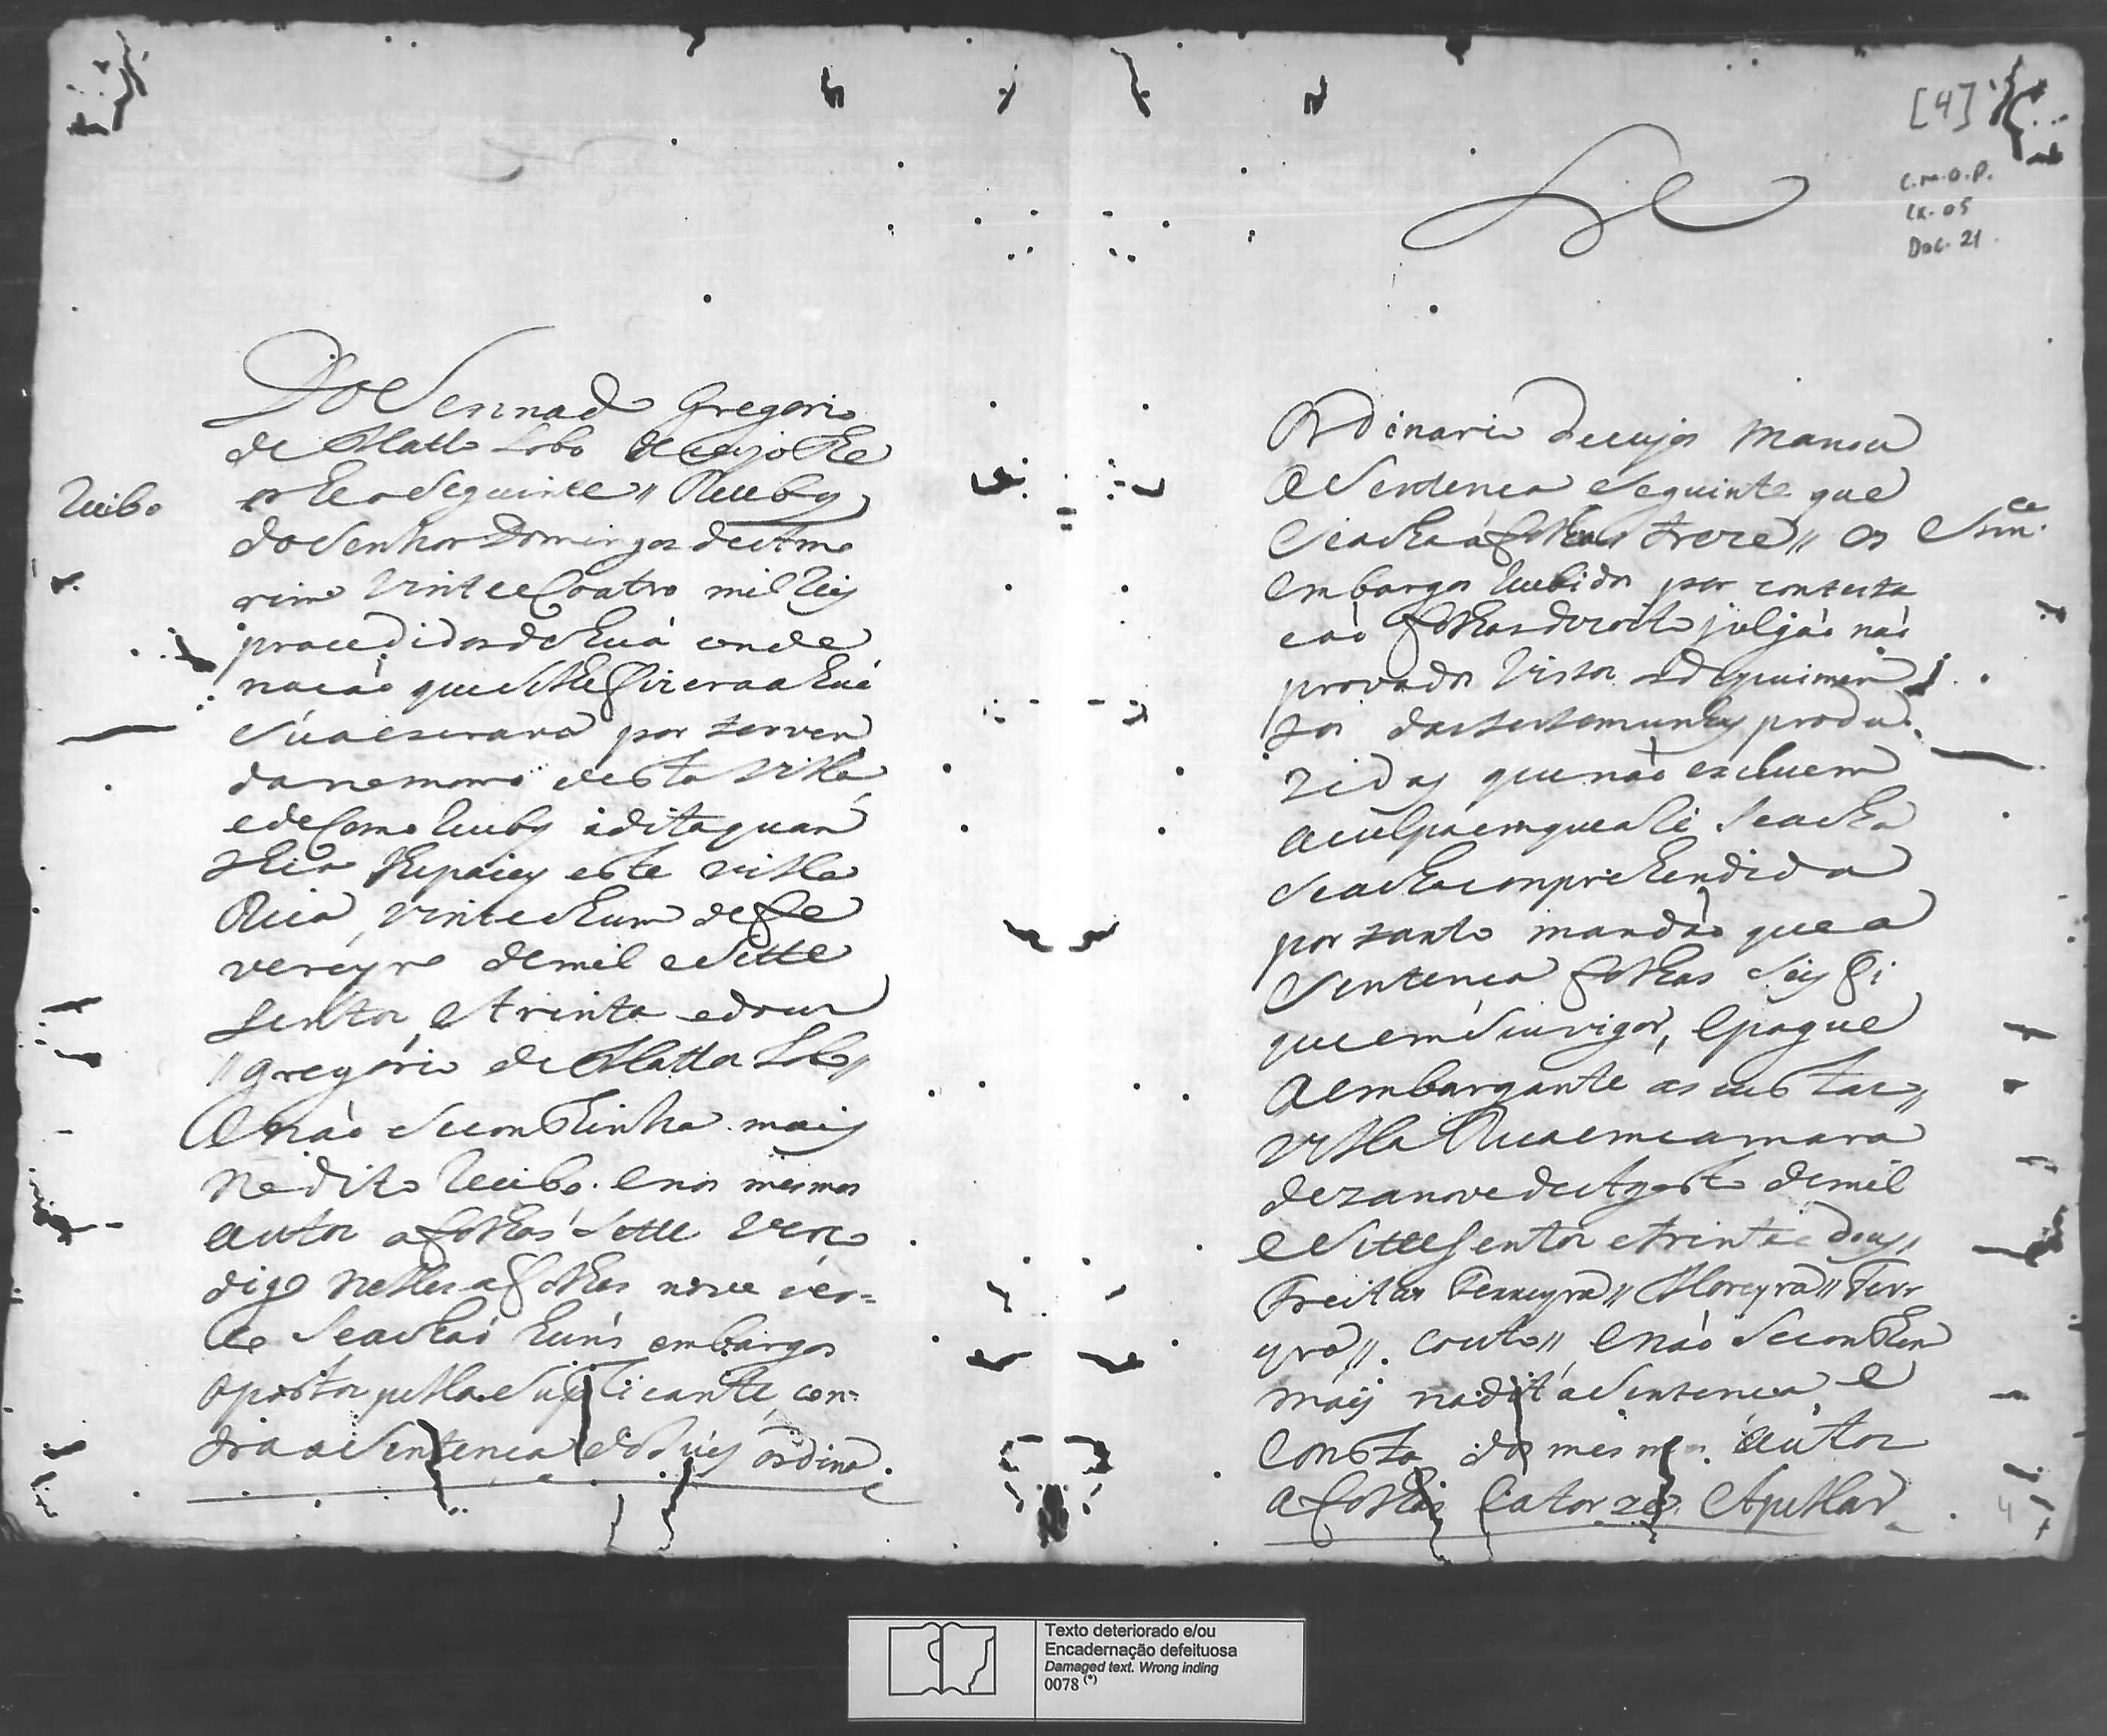 Do Sennado Gregorio
de Mattos Lobo de cujo Re
cibo
he o seguinte // Recebỳ
do Senhor Domingos de Amo
rim vinte e coatro mil reis
procedidos de huã conde
naçaõ que se lhe fizera a huã
sua escrava por ser ven
da no morro desta villa
e de como recebỳ a dita quan
thia lhe paçey este villa
Rica vinte e hum de fe
vereyro de mil e sette
sentos e trinta e dous
// Gregorio de Mattos Lobo //
E naõ se continha mais
no dito recibo. e nos mesmos
autos a folhas sette verso
digo nelles a folhas nove ver=
so se achaõ huns embargos
opostos pella suplicante con=
tra a sentença do Juis ordina
Recibo
[4]
C.M.O.P.
CX. 05
Doc. 21
Ordinario de cujos manou
a sentença seguinte que
se acha a folhas treze // os
Sn.ca
embargos recebidos por contesta
çaõ folhas dezoito julgaõ naõ
provados vistos os depuimen
tos das testemunhas produ
zidas que naõ excluem
a culpa em que a Re se acha
se acha comprehendida
por tanto mandaõ que a
sentença folhas seis fi
que em seu vigor, e pague
a embargante as custas //
Villa Rica em camara
dezanove de Agosto de mil
e sette sentos e trinta e dous //
Freitas Ferreyra // Moreyra // Ferr
eyra // Couto // e naõ se conthem
mais na dita sentença e
Consta dos mesmos autos
a folhas catorze Apellar
4
Texto deteriorado e/ou
Encadernação defeituosa
Damaged text. Wrong inding
0078 (*)